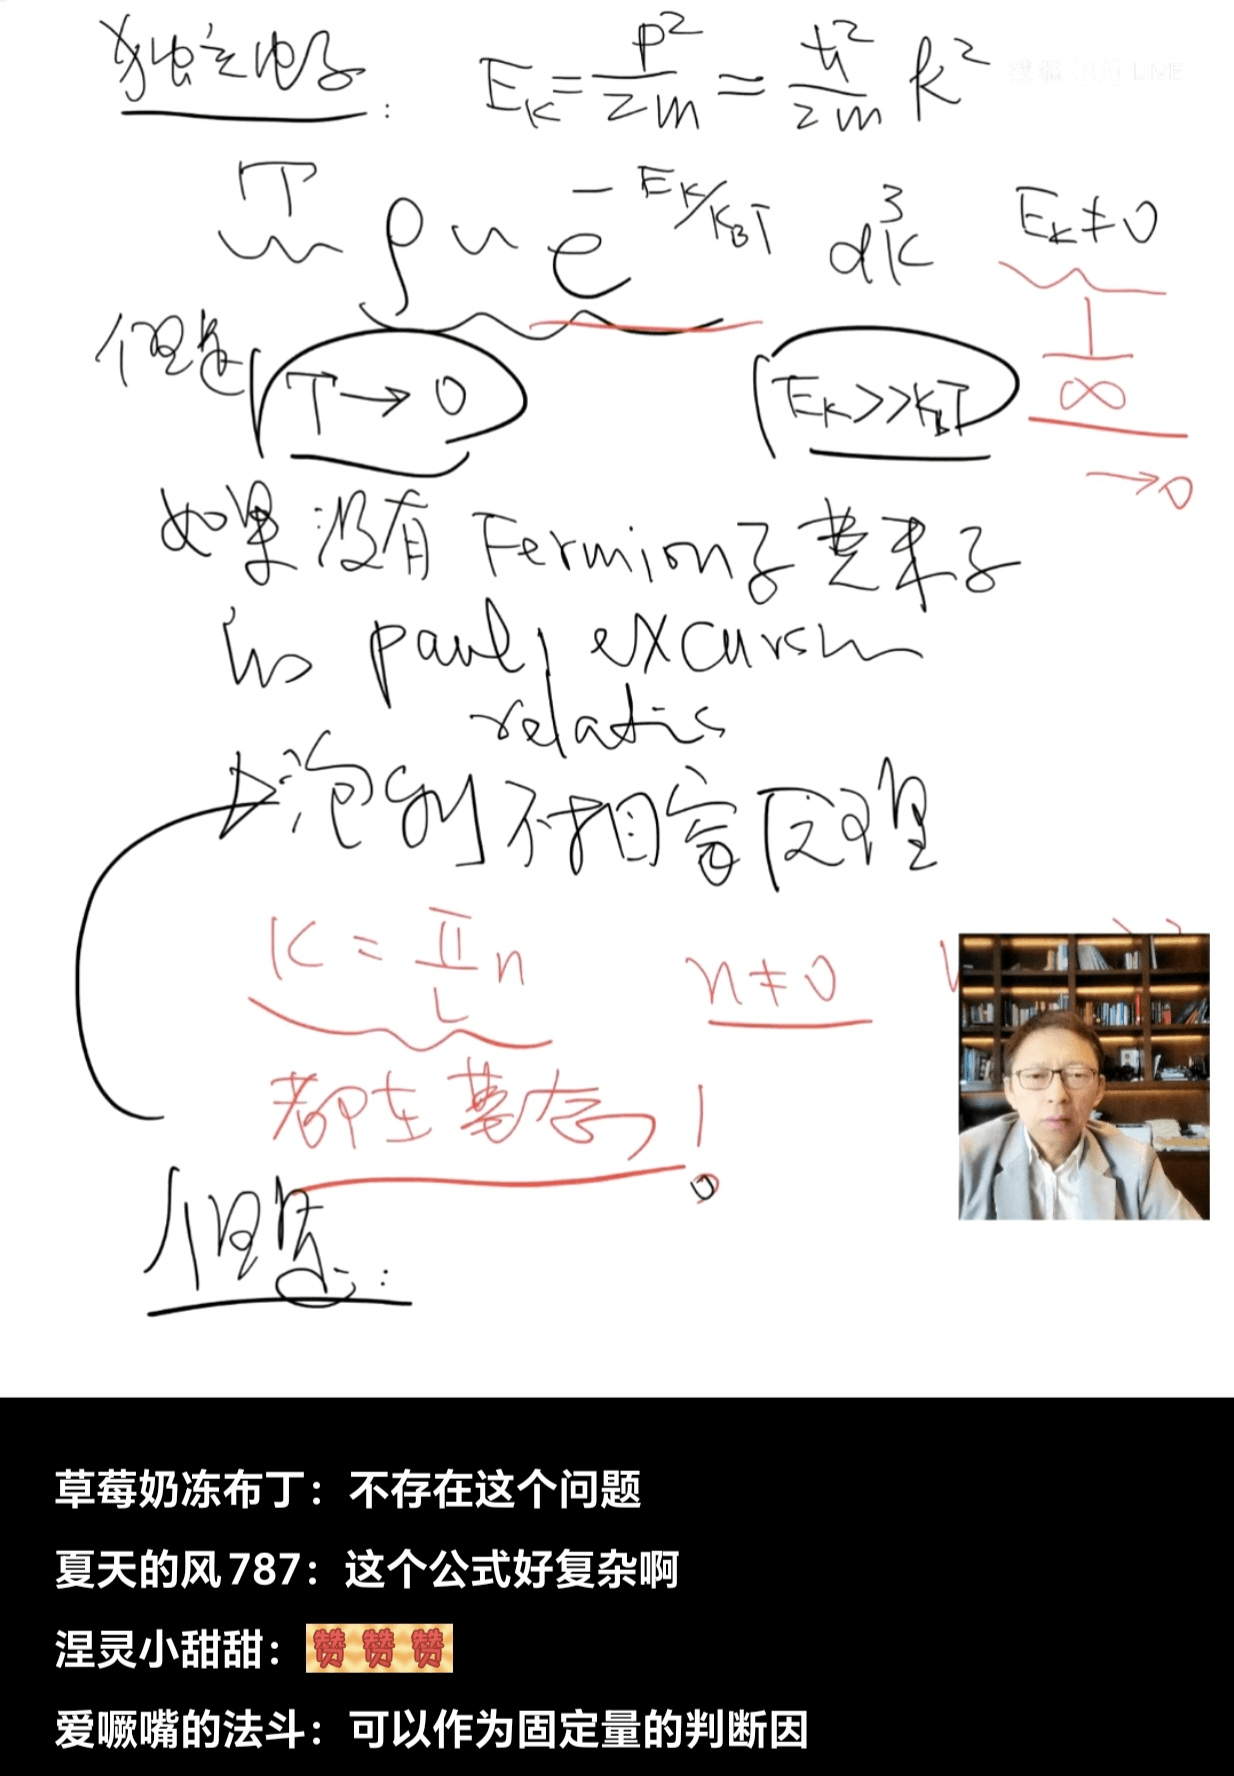 独立电子: E_K = p²/2m = ħ²/2m k²
T ρ ~ e^(-E_K/K_BT) d³K E_K≠0
但是 T→0 E_K>>K_BT 1/∞ →0
如果没有 Fermion子 费米子
in pauli excursion
relatis
泡利不相容原理
K = π/L n n≠0
都在基态!
但是:
草莓奶冻布丁：不存在这个问题
夏天的风787：这个公式好复杂啊
涅灵小甜甜：赞 赞 赞
爱噘嘴的法斗：可以作为固定量的判断因